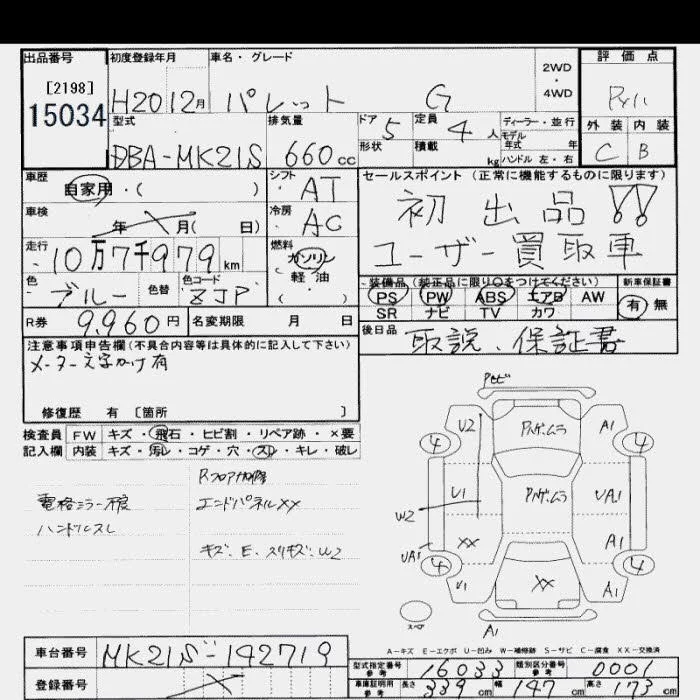 出品番号 初度登録年月 車名・グレード 評価点
[2198] 2WD・4WD
15034 H20 12月 パレット G
外装 内装
C B
型式 排気量 ドア 5 定員 4人 ディーラー・並行
モデル年式 年
DBA-MK21S 660cc 形状 積載 kg ハンドル 左・右
車歴 自家用・( ) シフト AT セールスポイント(正常に機能するものに限ります)
車検 年 月( 日) 冷房 AC 初出品!!
走行 10万7千979km 燃料 ガソリン・軽油( ) ユーザー買取車
色 ブルー 色替 色コード ZJP
装備品(純正品に限り○をつけてください) 新車保証書
PS PW ABS エアB AW 有・無
SR ナビ TV カワ
R券 9,960円 名変期限 月 日 後日品 取説、保証書
注意事項申告欄(不具合内容等は具体的に記入して下さい)
メーター文字かけ有
修復歴 有 [箇所 ]
検査員記入欄 FW キズ・飛石・ヒビ割・リペア跡・×要
内装 キズ・汚レ・コゲ・穴・スレ・キレ・破レ
電格ミラー不良
ハンドルスレ
エンドパネルXX
キズ、E、スリキズ、W2
U2 A1
4 4
U1 UA1
W2
XX A1
UA1
4 4
U1 XX A1
A1
スペア
A-キズ E-エクボ U-凹み W-補修跡 S-サビ C-腐食 XX-交換済
車台番号 MK21S-142719
登録番号
型式指定番号 参考 16033 類別区分番号 参考 0001
車庫証明用 参考 長さ 339cm 幅 147cm 高さ 173cm